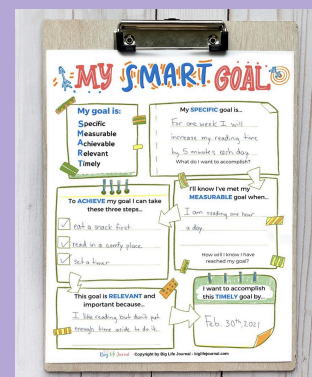 MY SMART GOAL
My goal is:
Specific
Measurable
Achievable
Relevant
Timely
My SPECIFIC goal is...
For one week I will
increase my reading time
by 5 minutes each day.
What do I want to accomplish?
To ACHIEVE my goal I can take
these three steps...
eat a snack first
read in a comfy place
set a timer
I'll know I've met my
MEASURABLE goal when...
I am reading one hour
a day.
How will I know I have
reached my goal?
This goal is RELEVANT and
important because...
I like reading but don't put
enough time aside to do it.
I want to accomplish
this TIMELY goal by...
Feb. 30th, 2021
Big Life Journal - Copyright by Big Life Journal - biglifejournal.com